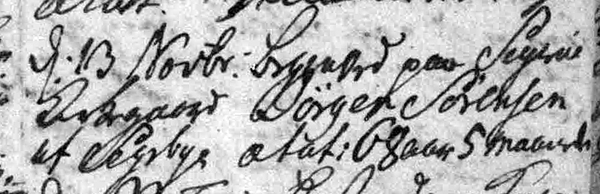 ætat:
d: 13 Novbr: begraved paa Segerie
Kirkgaard Jörgen Sörensen
af Segebye ætat: 68 aar 5 maaneder